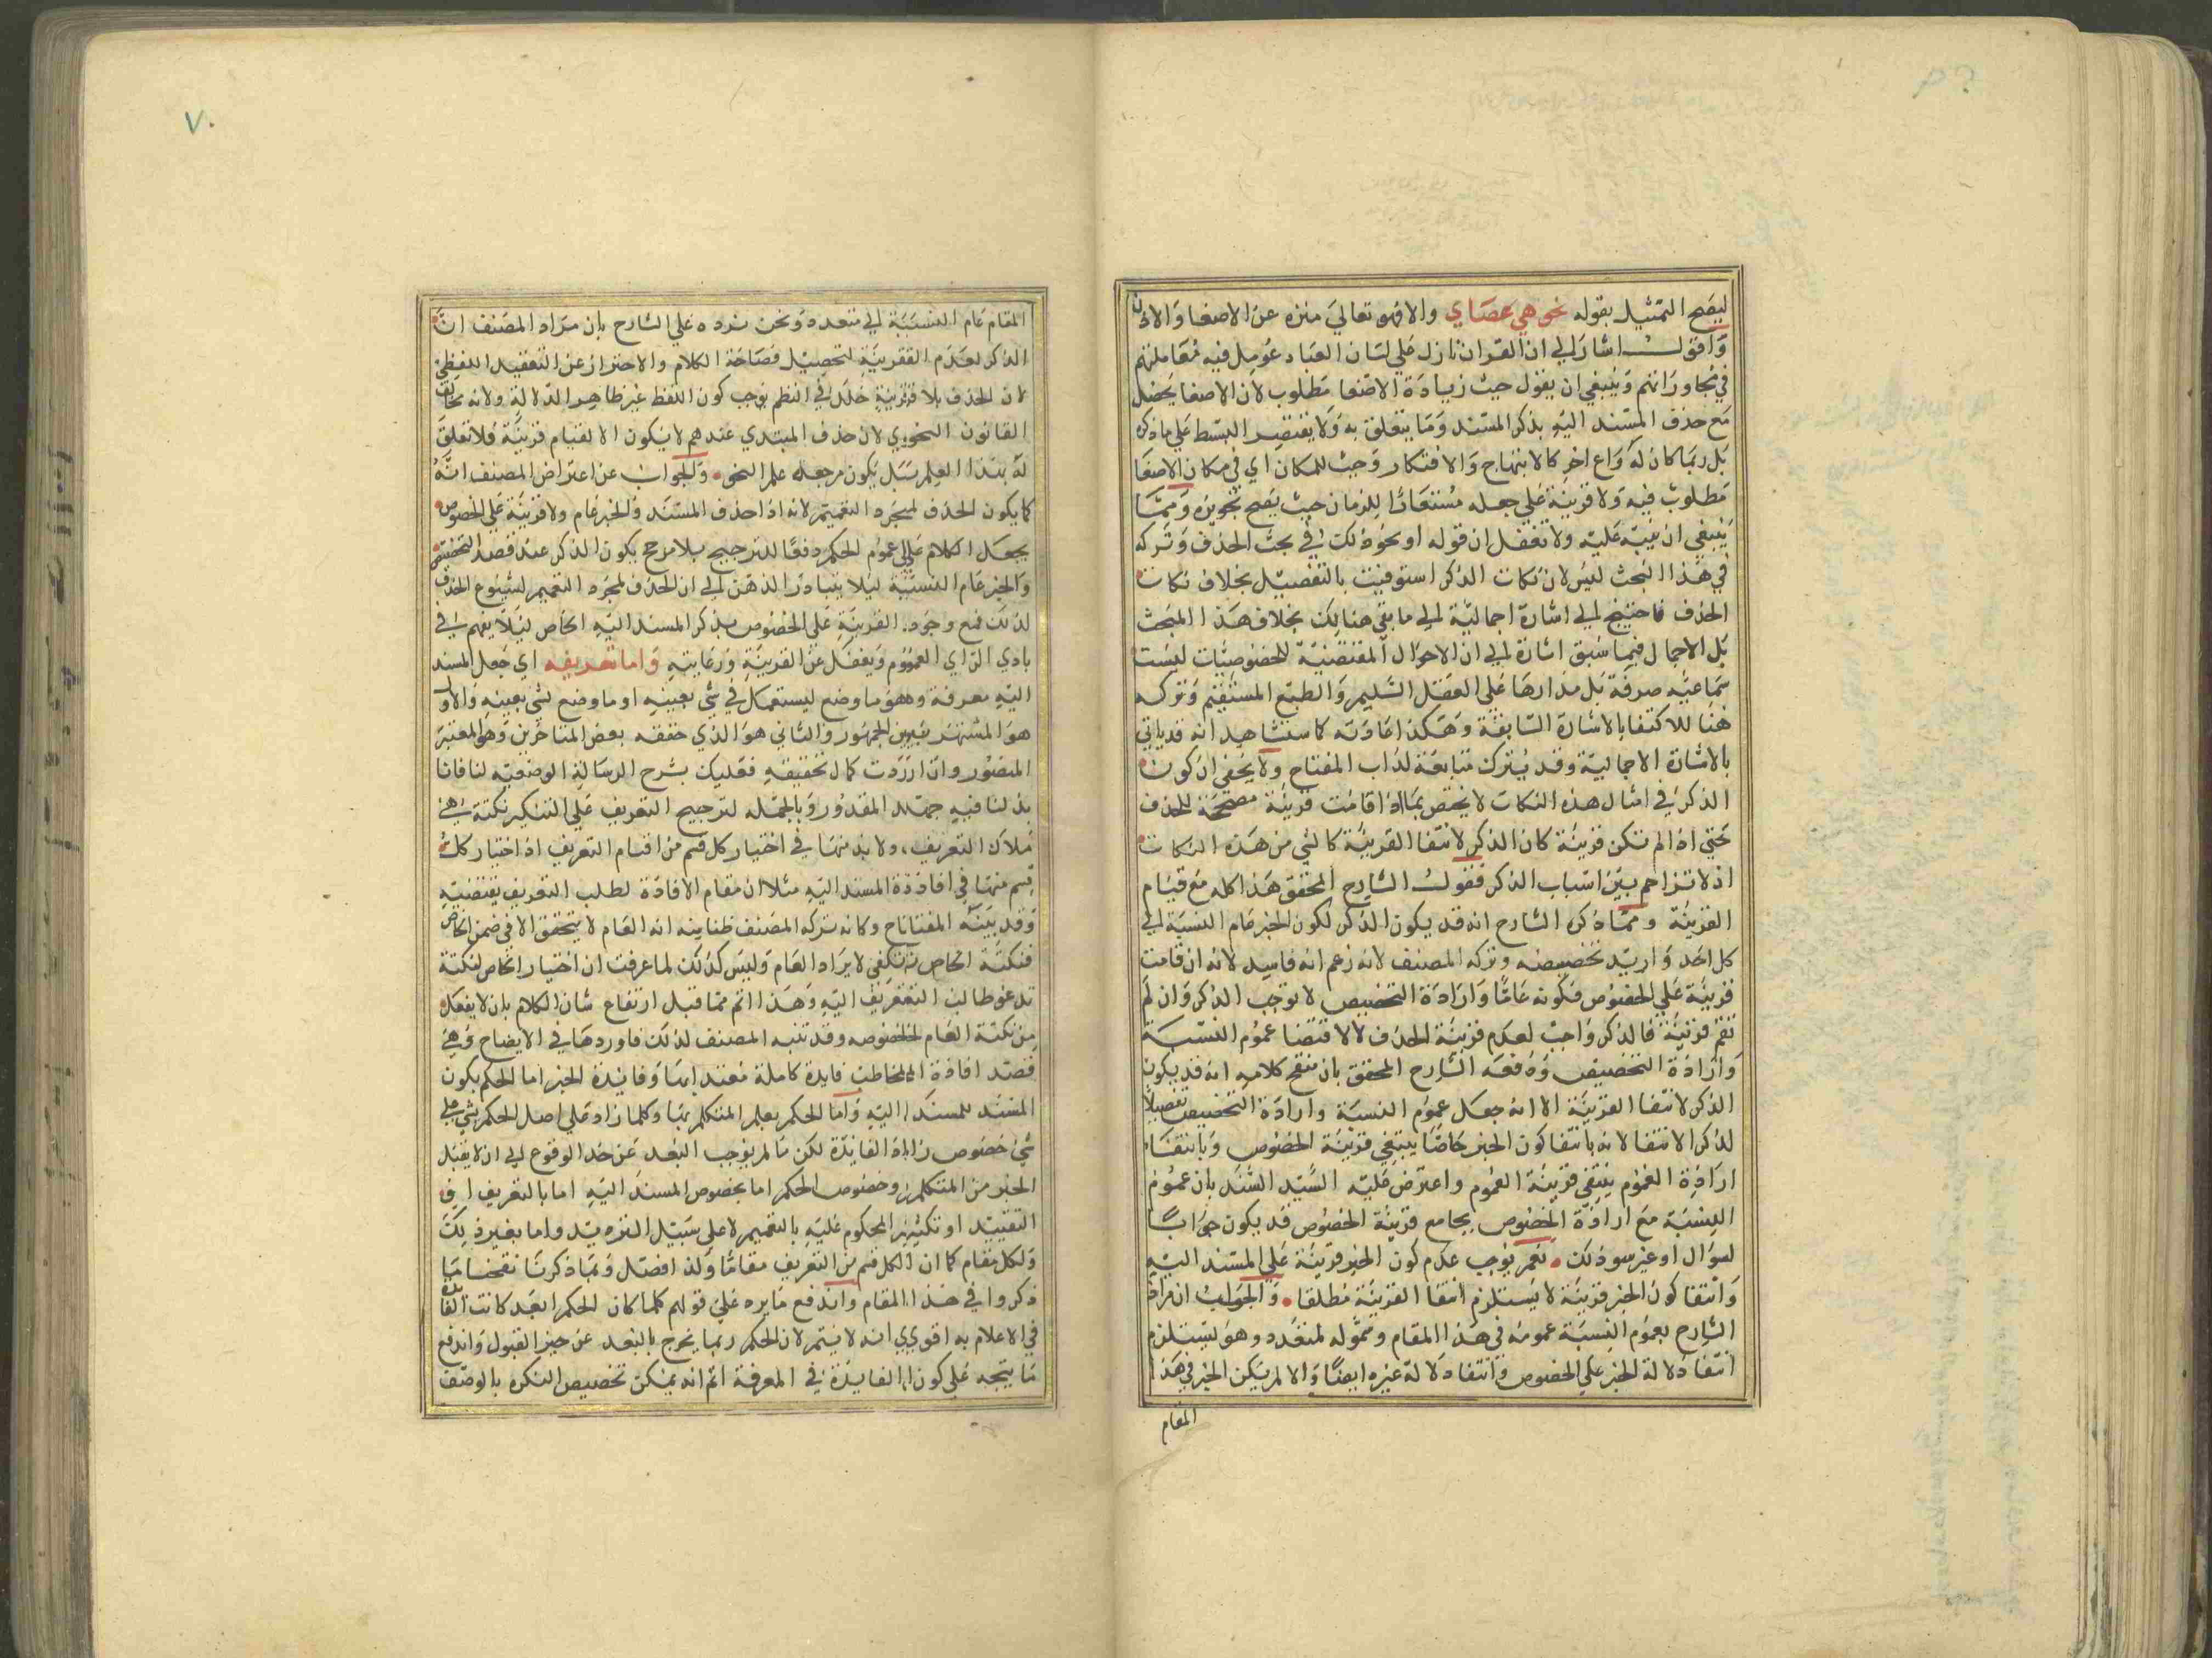 ليصح التمثيل بقوله نحو هي عصاي والا فهو تعالى منزه عن الاصغا والاذن
واقول اشار الى ان القران نازل على لسان العباد عومل فيه معاملتهم
في محاوراتهم وينبغي ان يقول حيث زيادة الاصغا مطلوب لان الاصغا يحصل
مع حذف المسند اليه بذكر المسند وما يتعلق به ولا يقتصر البسط على ما ذكره
بل ربما كان له دواع اخر كالابتهاج والافتكار وحيث للمكان اي في مكان الاصغا
مطلوب فيه ولا قرينة على جعله مستعارا للزمان حيث يصح تجويزه ومما
ينبغي ان ينبه عليه ولا تغفل ان قوله او نحو ذلك في بحث الحذف وتركه
في هذا البحث ليس لان نكات الذكر استوفيت بالتفصيل بخلاف نكات
الحذف فاحتيج الى اشارة اجمالية الى ما بقي هنالك بخلاف هذا المبحث
بل الاجمال فيما سبق اشارة الى ان الاحوال المقتضية للخصوصيات ليست
سماعية صرفة بل مدارها على العقل السليم والطبع المستقيم وتركه
هنا للاكتفا بالاشارة السابقة وهكذا عادته كما ستشاهد انه قد ياتي
بالاشارة الاجمالية وقد يترك متابعة لداب المفتاح ولا يخفى ان كون
الذكر في امثال هذه النكات لا يختص بما اذا قامت قرينة مصححة للحذف
حتى اذا لم تكن قرينة كان الذكر لانتفا القرينة كالشي من هذه النكات
اذ لا تزاحم بين اسباب الذكر فقول الشارح المحقق هذا كله مع قيام
القرينة ومما ذكره الشارح انه قد يكون الذكر لكون الخبر عام النسبة الى
كل احد واريد تخصيصه وتركه المصنف لانه زعم انه فاسد لانه ان قامت
قرينة على الخصوص فكونه عاما وارادة التخصيص لا توجب الذكر وان لم
تقم قرينة فالذكر واجب لعدم قرينة الحذف لا لاقتضا عموم النسبة
وارادة التخصيص ودفعه الشارح المحقق بان منقح كلامه انه قد يكون
الذكر لانتفا القرينة الا انه جعل عموم النسبة وارادة التخصيص تفصيلا
لذكر الانتفا لانه بانتفا كون الخبر خاصا ينتفي قرينة الخصوص وبانتفاء
ارادة العموم ينتفي قرينة العموم واعترض عليه السيد السند بان عموم
النسبة مع ارادة الخصوص يجامع قرينة الخصوص قد يكون جوابا
لسوال او غير ذلك نعم يوجب عدم كون الخبر قرينة على المسند اليه
وانتفا كون الخبر قرينة لا يستلزم انتفا القرينة مطلقا والجواب ان مراد
الشارح بعموم النسبة عمومه في هذا المقام وشموله لمتعدد وهو يستلزم
انتفا دلالة الخبر على الخصوص وانتفا دلالة غيره ايضا والا لم يكن الخبر في هذا
المقام
٧٠
المقام عام النسبة الى متعدد ونحن نرده على الشارح بان مراد المصنف ان
الذكر لعدم القرينة لتحصيل فصاحة الكلام والاحتراز عن التعقيد اللفظي
لان الحذف بلا قرينة خلل في النظم يوجب كون اللفظ غير ظاهر الدلالة ولانه يخالف
القانون النحوي لان حذف المبتدي عندهم لا يكون الا لقيام قرينة فلا تعلق
له بهذا العلم بل يكون مرجعه علم النحو والجواب عن اعتراض المصنف انه
كما يكون الحذف لمجرد التعميم لانه اذا حذف المسند والخبر عام ولا قرينة على الخصوص
يجعل الكلام على عموم الحكم دفعا للترجيح بلا مرجح يكون الذكر عند قصد التخصيص
والخبر عام النسبة ليلا يتبادر الذهن الى ان الحذف لمجرد التعميم لشيوع الحذف
لذلك فمع وجود القرينة على الخصوص يذكر المسند اليه الخاص ليلا يفهم في
بادي الراي العموم ويغفل عن القرينة ورعايته واما تعريفه اي جعل المسند
اليه معرفة وهو ما وضع ليستعمل في شي بعينه او ما وضع لشي بعينه والاول
هو المشتهر بين الجمهور والثاني هو الذي حققه بعض المتاخرين وهو المعتبر
المنصور وان اردت كمال تحقيقه فعليك بشرح الرسالة الوضعية لنا فانا
بذلنا فيه جهد المقدور وبالجملة لترجيح التعريف على التنكير نكتة هي
ملاك التعريف، ولا بد منها في اختيار كل قسم من اقسام التعريف اذ اختيار كل
قسم منها في افادة المسند اليه مثلا ان مقام الافادة لطلب التعريف يقتضيه
وقد بينه المفتاح وكانه تركه المصنف ظنا منه انه العام لا يتحقق الا في ضمن الخاص
فنكتة الخاص تكفي لايراد العام وليس كذلك لما عرفت ان اختيار الخاص لنكتة
تدعو طالب التعريف اليه وهذا اتم مما قيل ارتفاع شان الكلام بان لا يفعله
من نكتة العام لخصوصه وقد تنبه المصنف لذلك فاوردها في الايضاح وهي
قصد افادة المخاطب فايدة كاملة معتد بها وفايدة الخبر اما الحكم بكون
المسند للمسند اليه واما الحكم بعلم المتكلم بها وكلما زاد على اصل الحكم شي على
شي خصوص زاد الفايدة لكن ما لم يوجب البعد عن حد الوقوع الى ان لا يقبل
الخبر من المتكلم وخصوص الحكم اما بخصوص المسند اليه اما بالتعريف او
التقييد او تكثير المحكوم عليه بالتعميم لا على سبيل الترديد واما بغير ذلك
ولكل مقام كما ان لكل قسم من التعريف مقاما ولذا فصل وبما ذكرنا نقحنا ما
ذكروا في هذا المقام واندفع ما يرد على قولهم كلما كان الحكم ابعد كانت الفايدة
في الاعلام به اقوى انه لا يتم لان الحكم ربما يخرج بالبعد عن حيز القبول واندفع
ما يتجه على كون الفايدة في المعرفة اتم انه يمكن تخصيص النكرة بالوصف